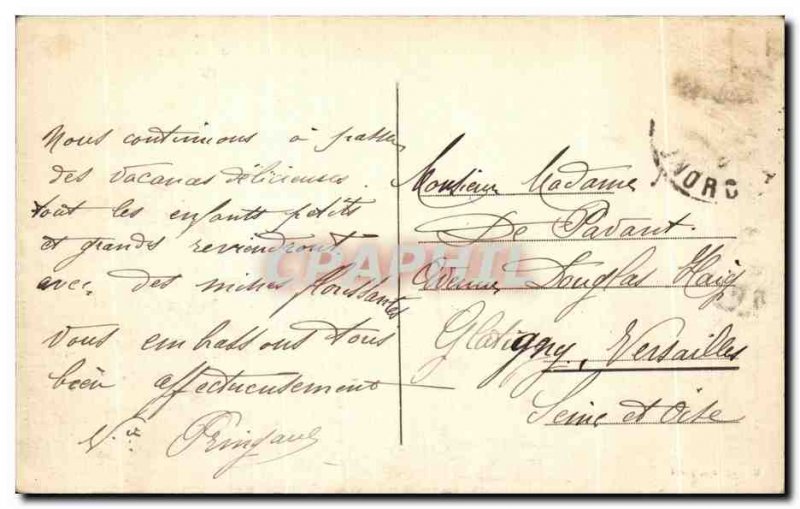 Nous continuons à passer
des vacances délicieuses.
tout les enfants petits
et grands reviendront
avec des mines florissantes
Vous embrassons tous
bien affectueusement
Monsieur Madame
De Pavant.
Avenue Douglas Haig
Glatigny, Versailles
Seine et Oise
CPAPHIL